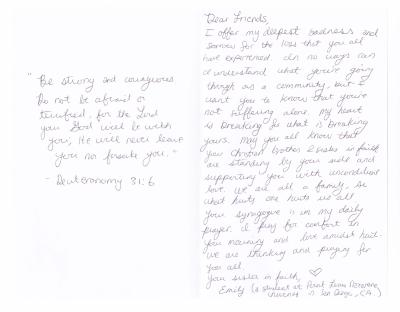 "Be strong and courageous.
Do not be afraid or
terrified, for the Lord
you God will be with
you, HE will never leave
you no forsake you."
- Deuteronomy 31:6
Dear Friends,
I offer my deepest sadness and
sorrow for the loss that you all
have experienced. In no ways can
I understand what you're going
through as a community, but I
want you to know that you're
not suffering alone. My heart
is breaking for what is breaking
yours. May you all know that
you Christian brother & sisters in faith
are standing by your side and
supporting you with unconditional
love. We are all a family, so
what hurts one hurts us all.
Your synagogue is in my daily
prayer. I pray for comfort in
you mourning and love amidst hate.
We are thinking and praying for
you all.
You sister in faith, ♡
Emily (a student at Point Loma Nazarene
University in San Diego, CA.)